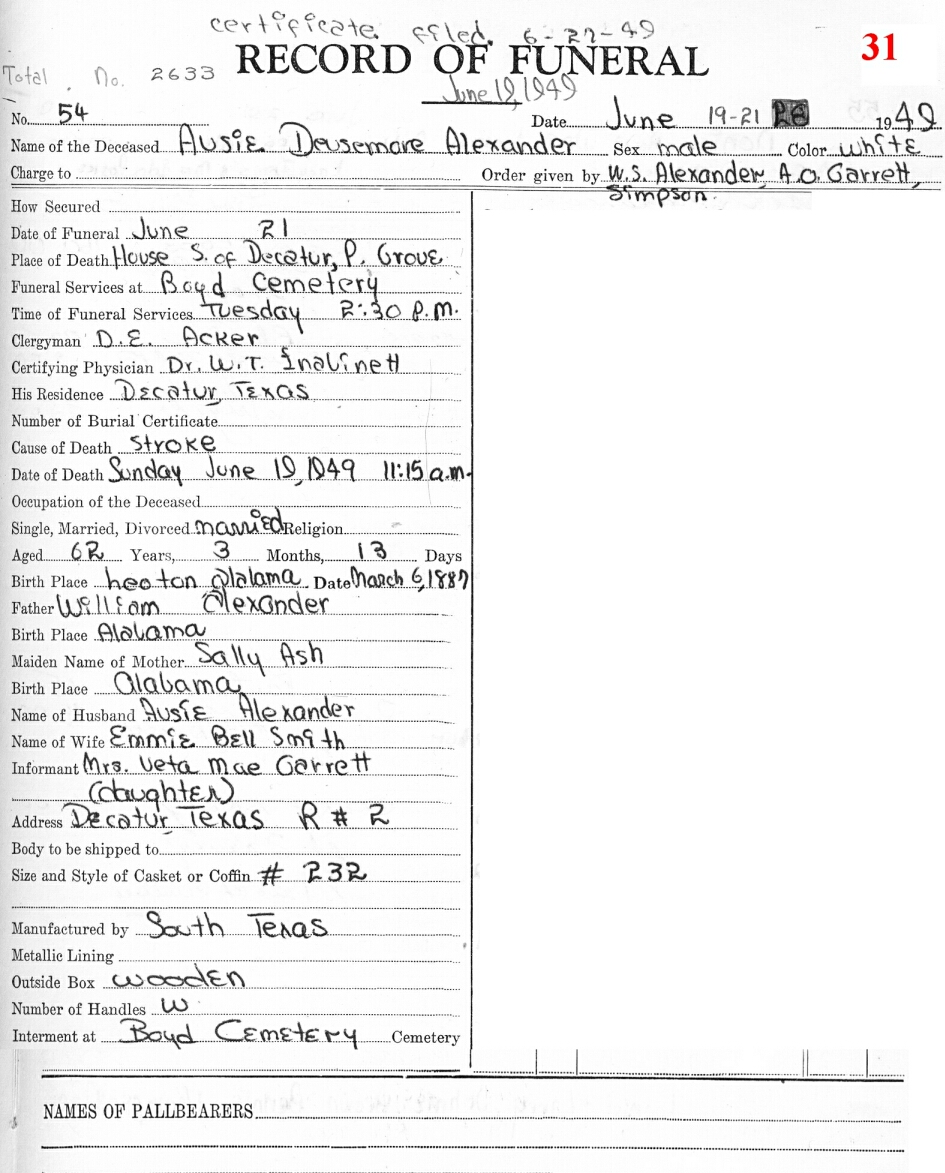 certificate filed. 6-27-49
31
RECORD OF FUNERAL
Total No. 2633
June 19, 1949
No. 54 Date June 19-21 1949
Name of the Deceased Ausie Deusemore Alexander Sex male Color white
Charge to Order given by W.S. Alexander, A.O. Garrett,
Simpson.
How Secured
Date of Funeral June 21
Place of Death House S. of Decatur, P. Grove
Funeral Services at Boyd Cemetery
Time of Funeral Services Tuesday 2:30 P.M.
Clergyman D.E. Acker
Certifying Physician Dr. W.T. Inabinett
His Residence Decatur, Texas
Number of Burial Certificate
Cause of Death Stroke
Date of Death Sunday June 19, 1949 11:15 a.m.
Occupation of the Deceased
Single, Married, Divorced married Religion
Aged 62 Years, 3 Months, 13 Days
Birth Place Alabama Date March 6, 1887
Father William Alexander
Birth Place Alabama
Maiden Name of Mother Sally Ash
Birth Place Alabama
Name of Husband Ausie Alexander
Name of Wife Emmie Bell Smith
Informant Mrs. Veta Mae Garrett
(daughter)
Address Decatur Texas R # 2
Body to be shipped to
Size and Style of Casket or Coffin # 232
Manufactured by South Texas
Metallic Lining
Outside Box wooden
Number of Handles W
Interment at Boyd Cemetery Cemetery
NAMES OF PALLBEARERS